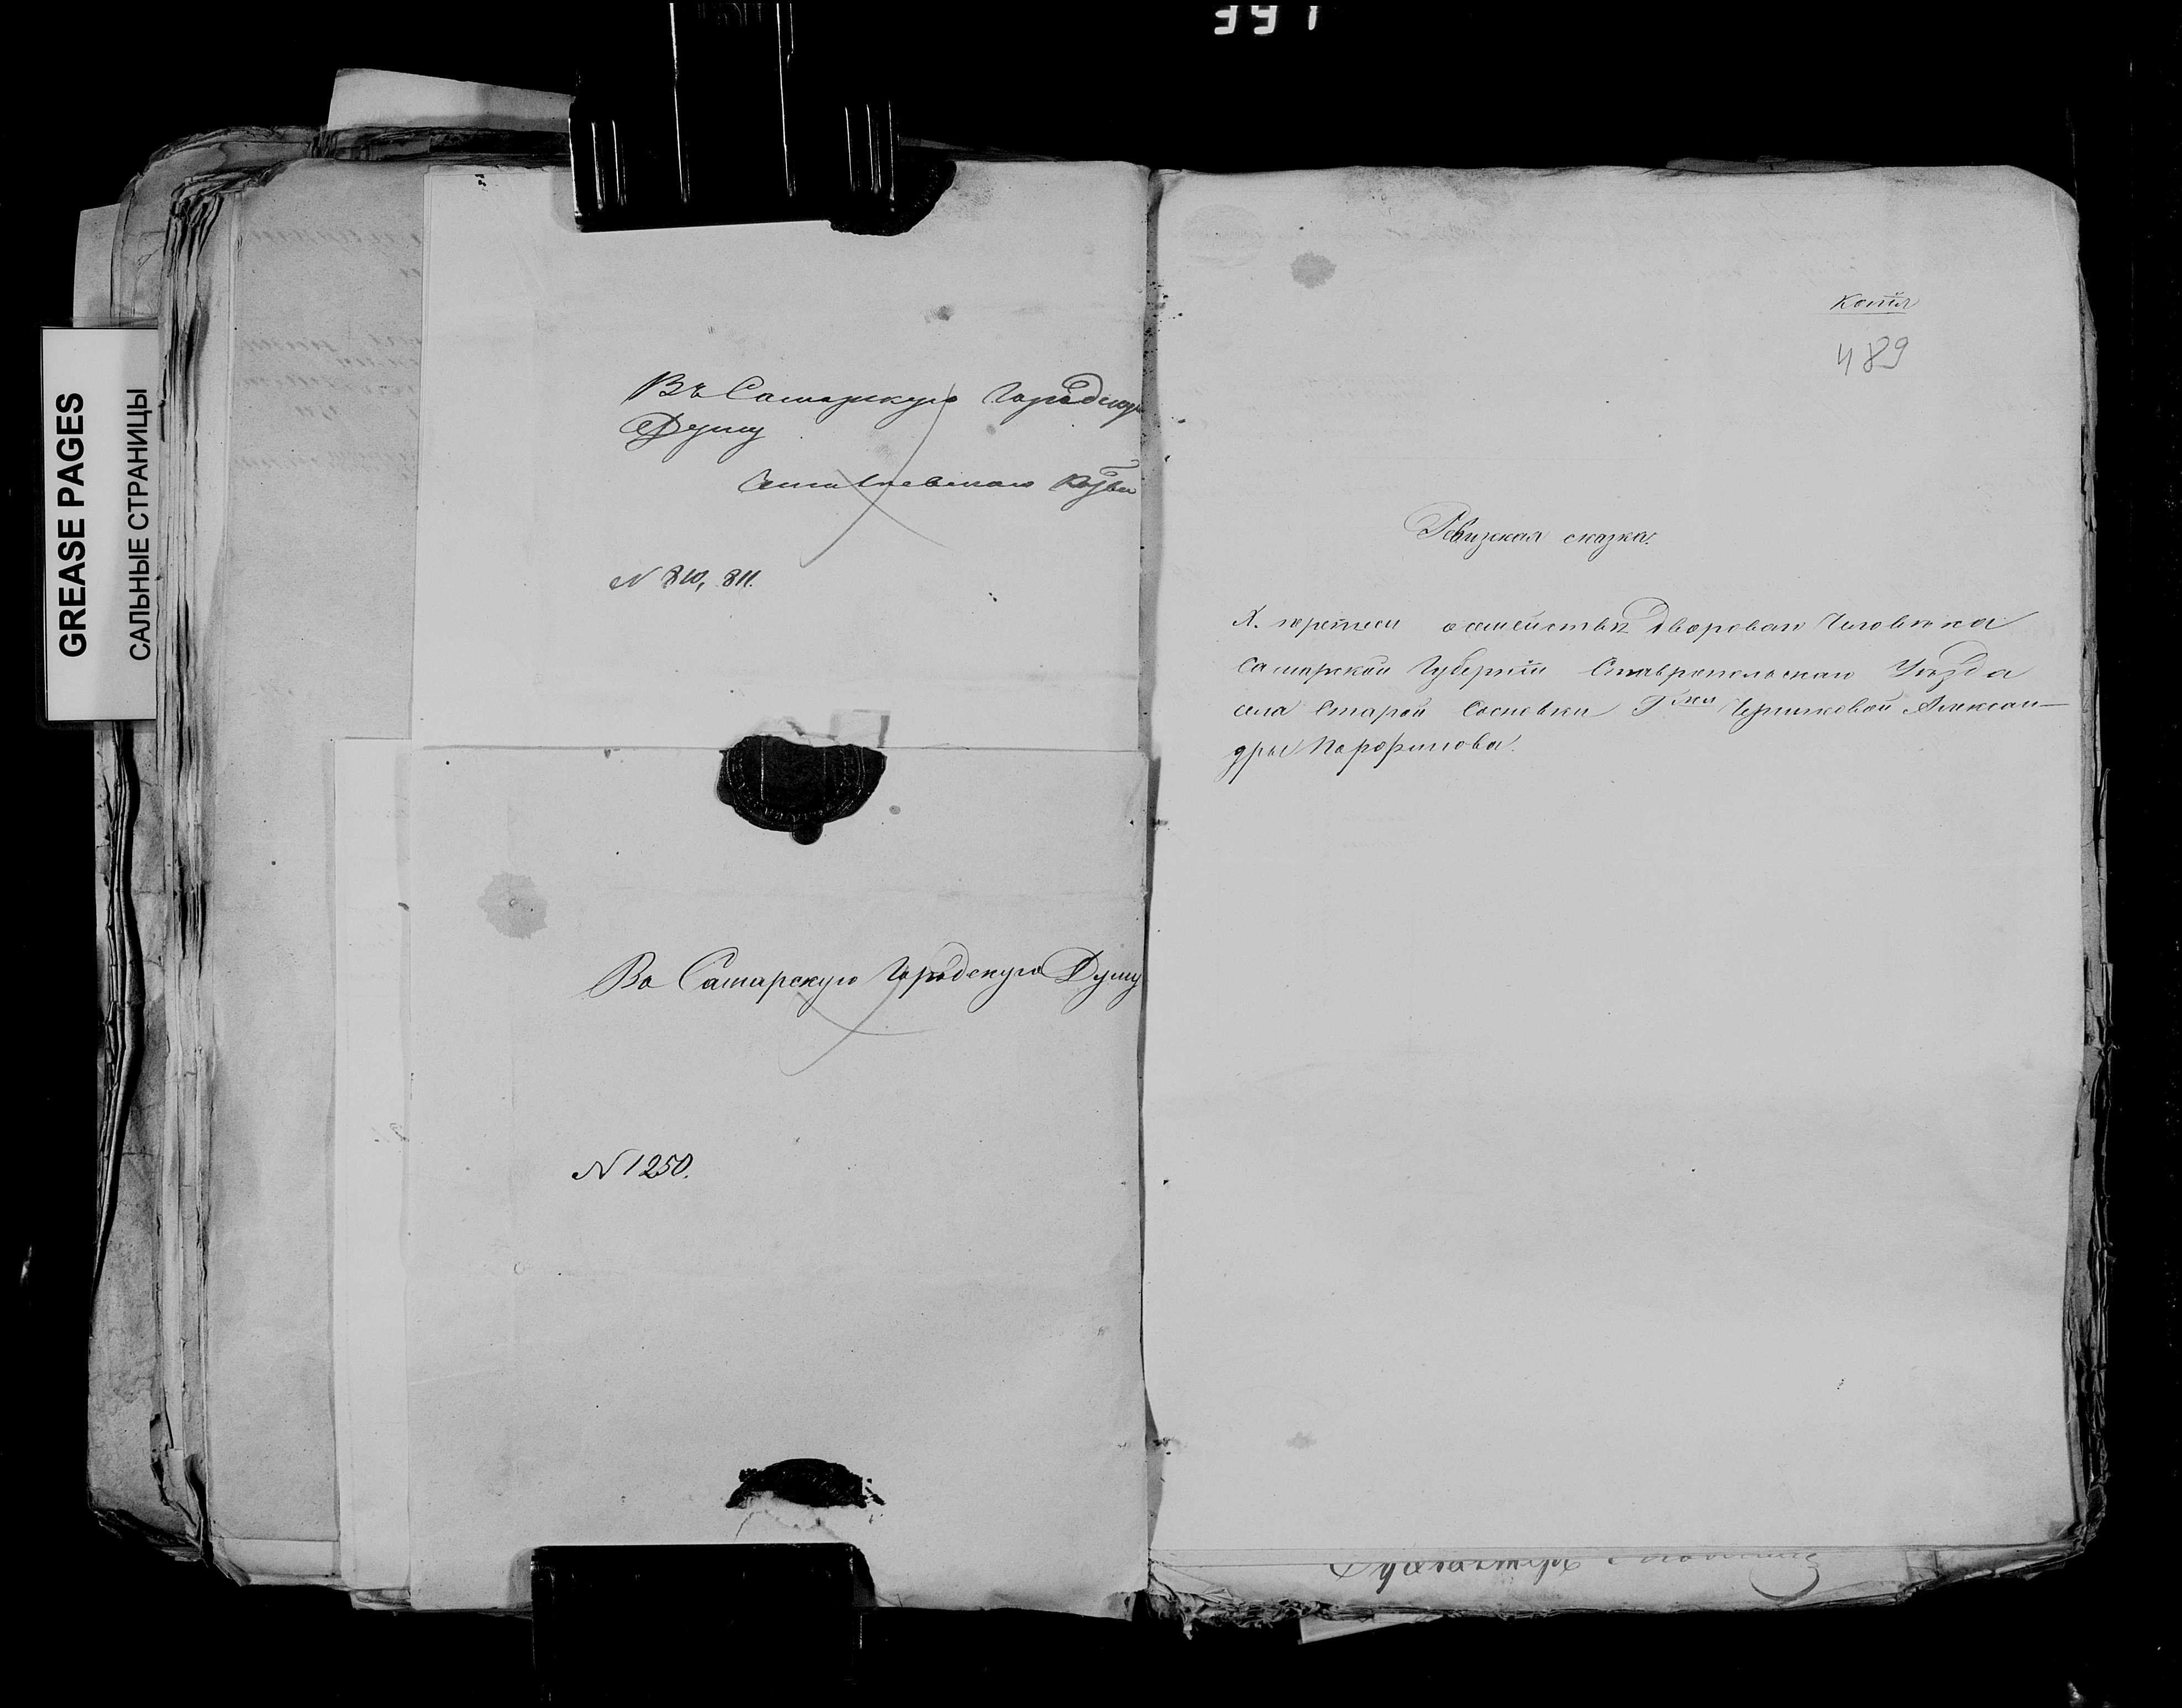 391
GREASE PAGES
САЛЬНЫЕ СТРАНИЦЫ
Въ Самарскую Городскую
Думу
N 810, 811.
Въ Самарскую Городскую Думу
N 1250.
Копія
489
Ревизская сказка.
X. переписи о семействѣ дворовaго Человѣка
Самарской Губерніи Ставропольскаго Уѣзда
села Старой Сосновки Г-жи Чертковой Алексан-
дры Парфинова.